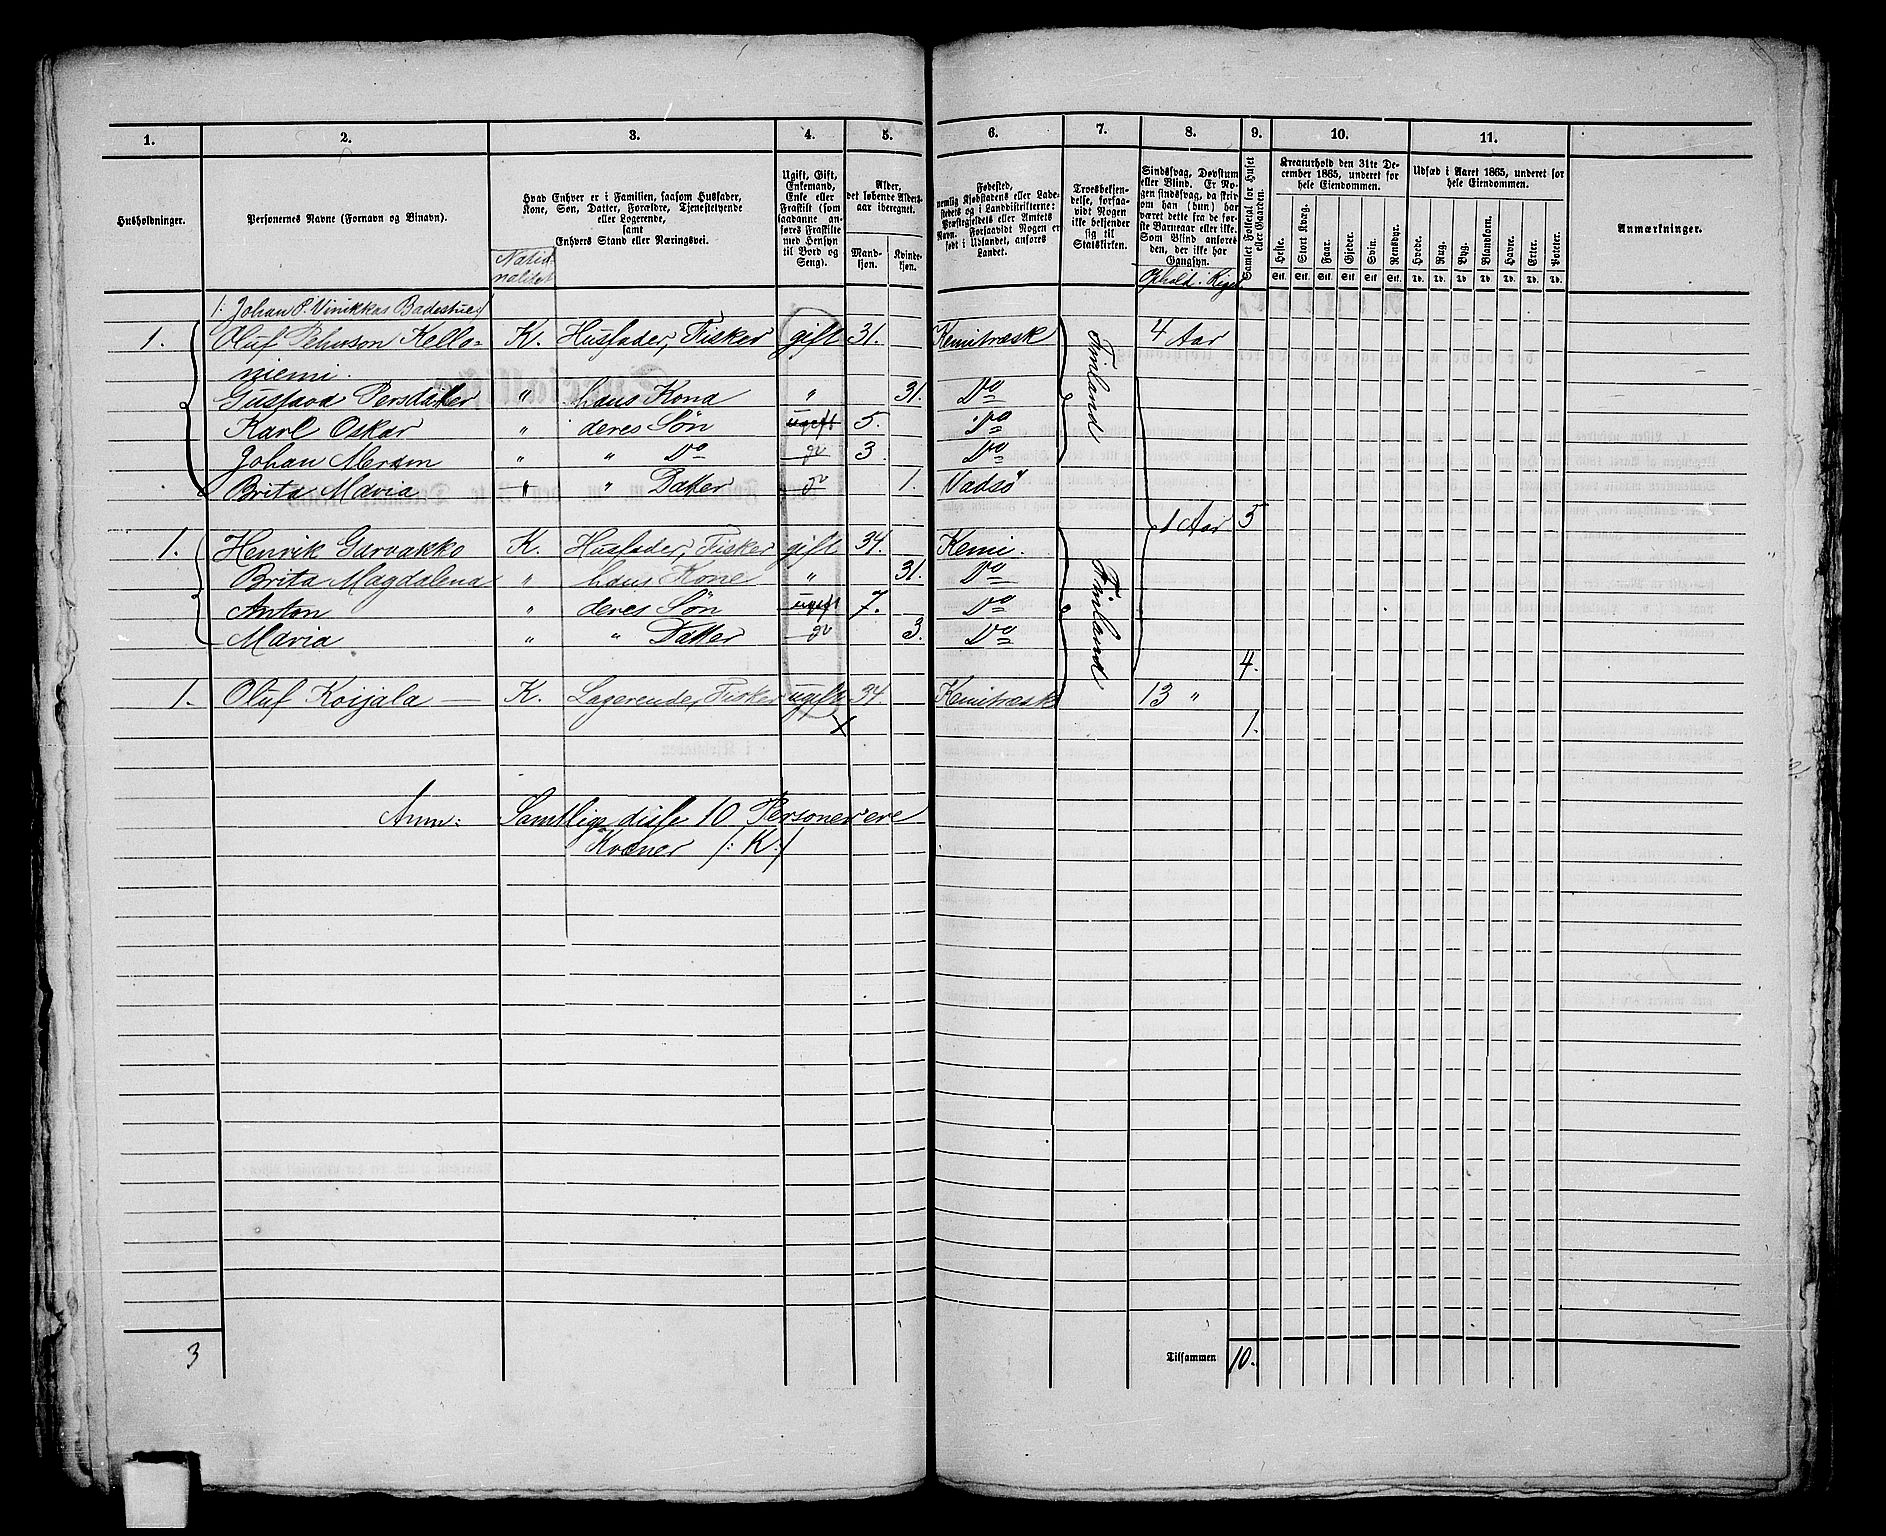 1. 2. 3. 4. 5. 6. 7. 8. 9. 10. 11.
Husholdninger.
Personernes Navne (Fornavn og Binavn).
Hvad Enhver er i Familien, saasom Husfader,
Kone, Søn, Datter, Forældre, Tjenestetyende
eller Logerende,
samt
Enhvers Stand eller Næringsvei.
Natio-
nalitet
Ugift, Gift,
Enkemand,
Enke eller
Fraskilt (som
saadanne an-
føres Fraskilte
med Hensyn
til Bord og
Seng).
Alder,
det løbende Alders-
aar iberegnet.
Mand-
kjøn.
Kvinde-
kjøn.
Fødested,
nemlig Kjøbstadens eller Lade-
stedets og i Landdistrikterne:
Præstegjeldets eller Amtets
Navn. Forsaavidt Nogen er
født i Udlandet, anføres
Landet.
Troesbekjen-
delse, forsaa-
vidt Nogen
ikke bekjender
sig til
Statskirken.
Sindssvag, Døvstum
eller Blind. Er No-
gen sindssvag, da skriv
om han (hun) har
været dette fra de før-
ste Barneaar eller ikke.
Som Blind anføres
den, der ikke har
Gangsyn.
Ophold i Riget
Samlet Folketal for Huset
eller Gaarden.
Kreaturhold den 31te De-
cember 1865, underet for
hele Eiendommen.
Heste. Stort Kvæg. Faar. Gjeder. Svin. Rensdyr.
Stk. Stk. Stk. Stk. Stk. Stk.
Udsæd i Aaret 1865, underet for
hele Eiendommen.
Hvede. Rug. Byg. Blandkorn. Havre. Erter. Poteter.
Td. Td. Td. Td. Td. Td. Td.
Anmærkninger.
1. Johan P. Vinikkas Badestue
1. Oluf Pehrson Kello- K. Husfader, Fisker gift 31. Kemitræsk Finland 4 Aar
niemi.
Gustava Persdatter " hans Kone " 31. Do
Karl Oskar " deres Søn ugift 5. Do
Johan " " Do do 3. Do
Brita Maria " " Datter do 1. Vadsø
5
1. Henrik Garvakko K. Husfader, Fisker gift 34. Kemi. Finland 1 Aar
Brita Magdalena " hans Kone " 31. Do
Anton " deres Søn ugift 7. Do
Maria " " Datter do 3. Do
4.
1. Oluf Koijala — K. Logerende, Fisker ugift 34. Kemitræsk 13 "
x 1.
Anm: Samtlige disse 10 Personer ere
Kvæner /: K :/
3 Tilsammen 10.